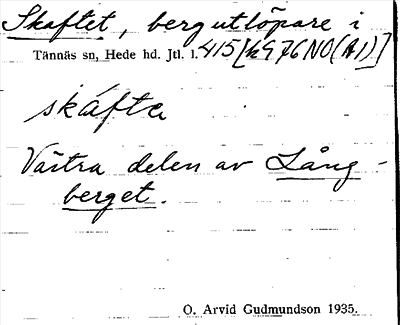 Skaftet, bergutlöpare i
Tännäs sn, Hede hd. Jtl. l. 415[h976NO(A1)]
skáfta
Västra delen av Lång-
berget.
O. Arvid Gudmundson 1935.